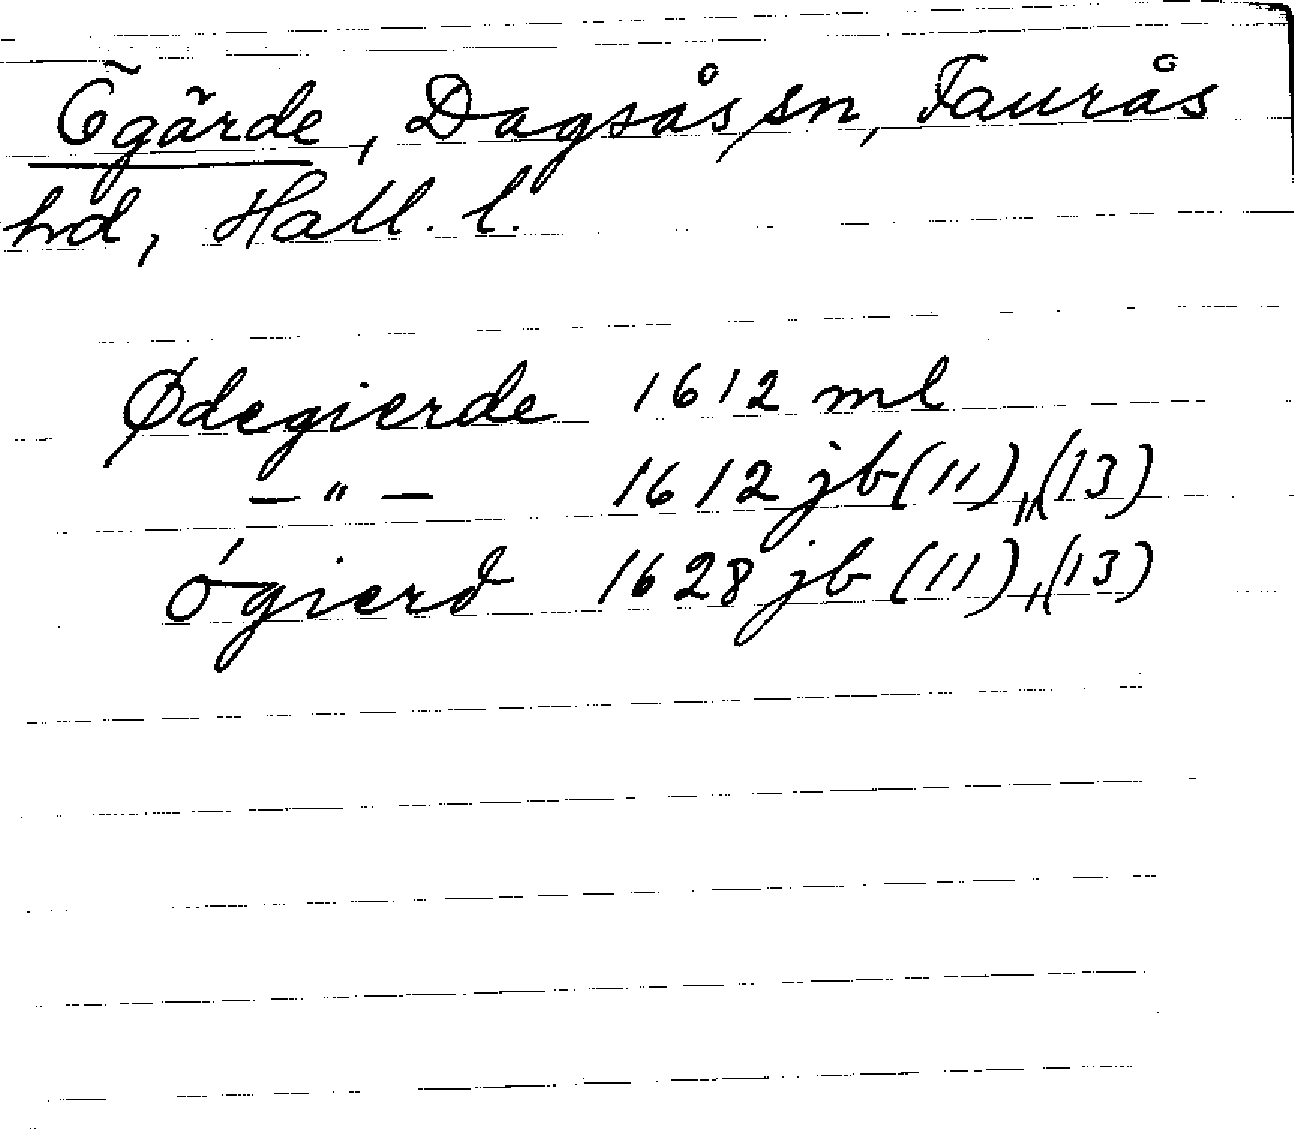 Ögärde, Dagsås sn, Faurås
hd, Hall. l.
Ødegierde 1612 ml
— " — 1612 jb (11), "(13)
Øgierd 1628 jb (11), "(13)